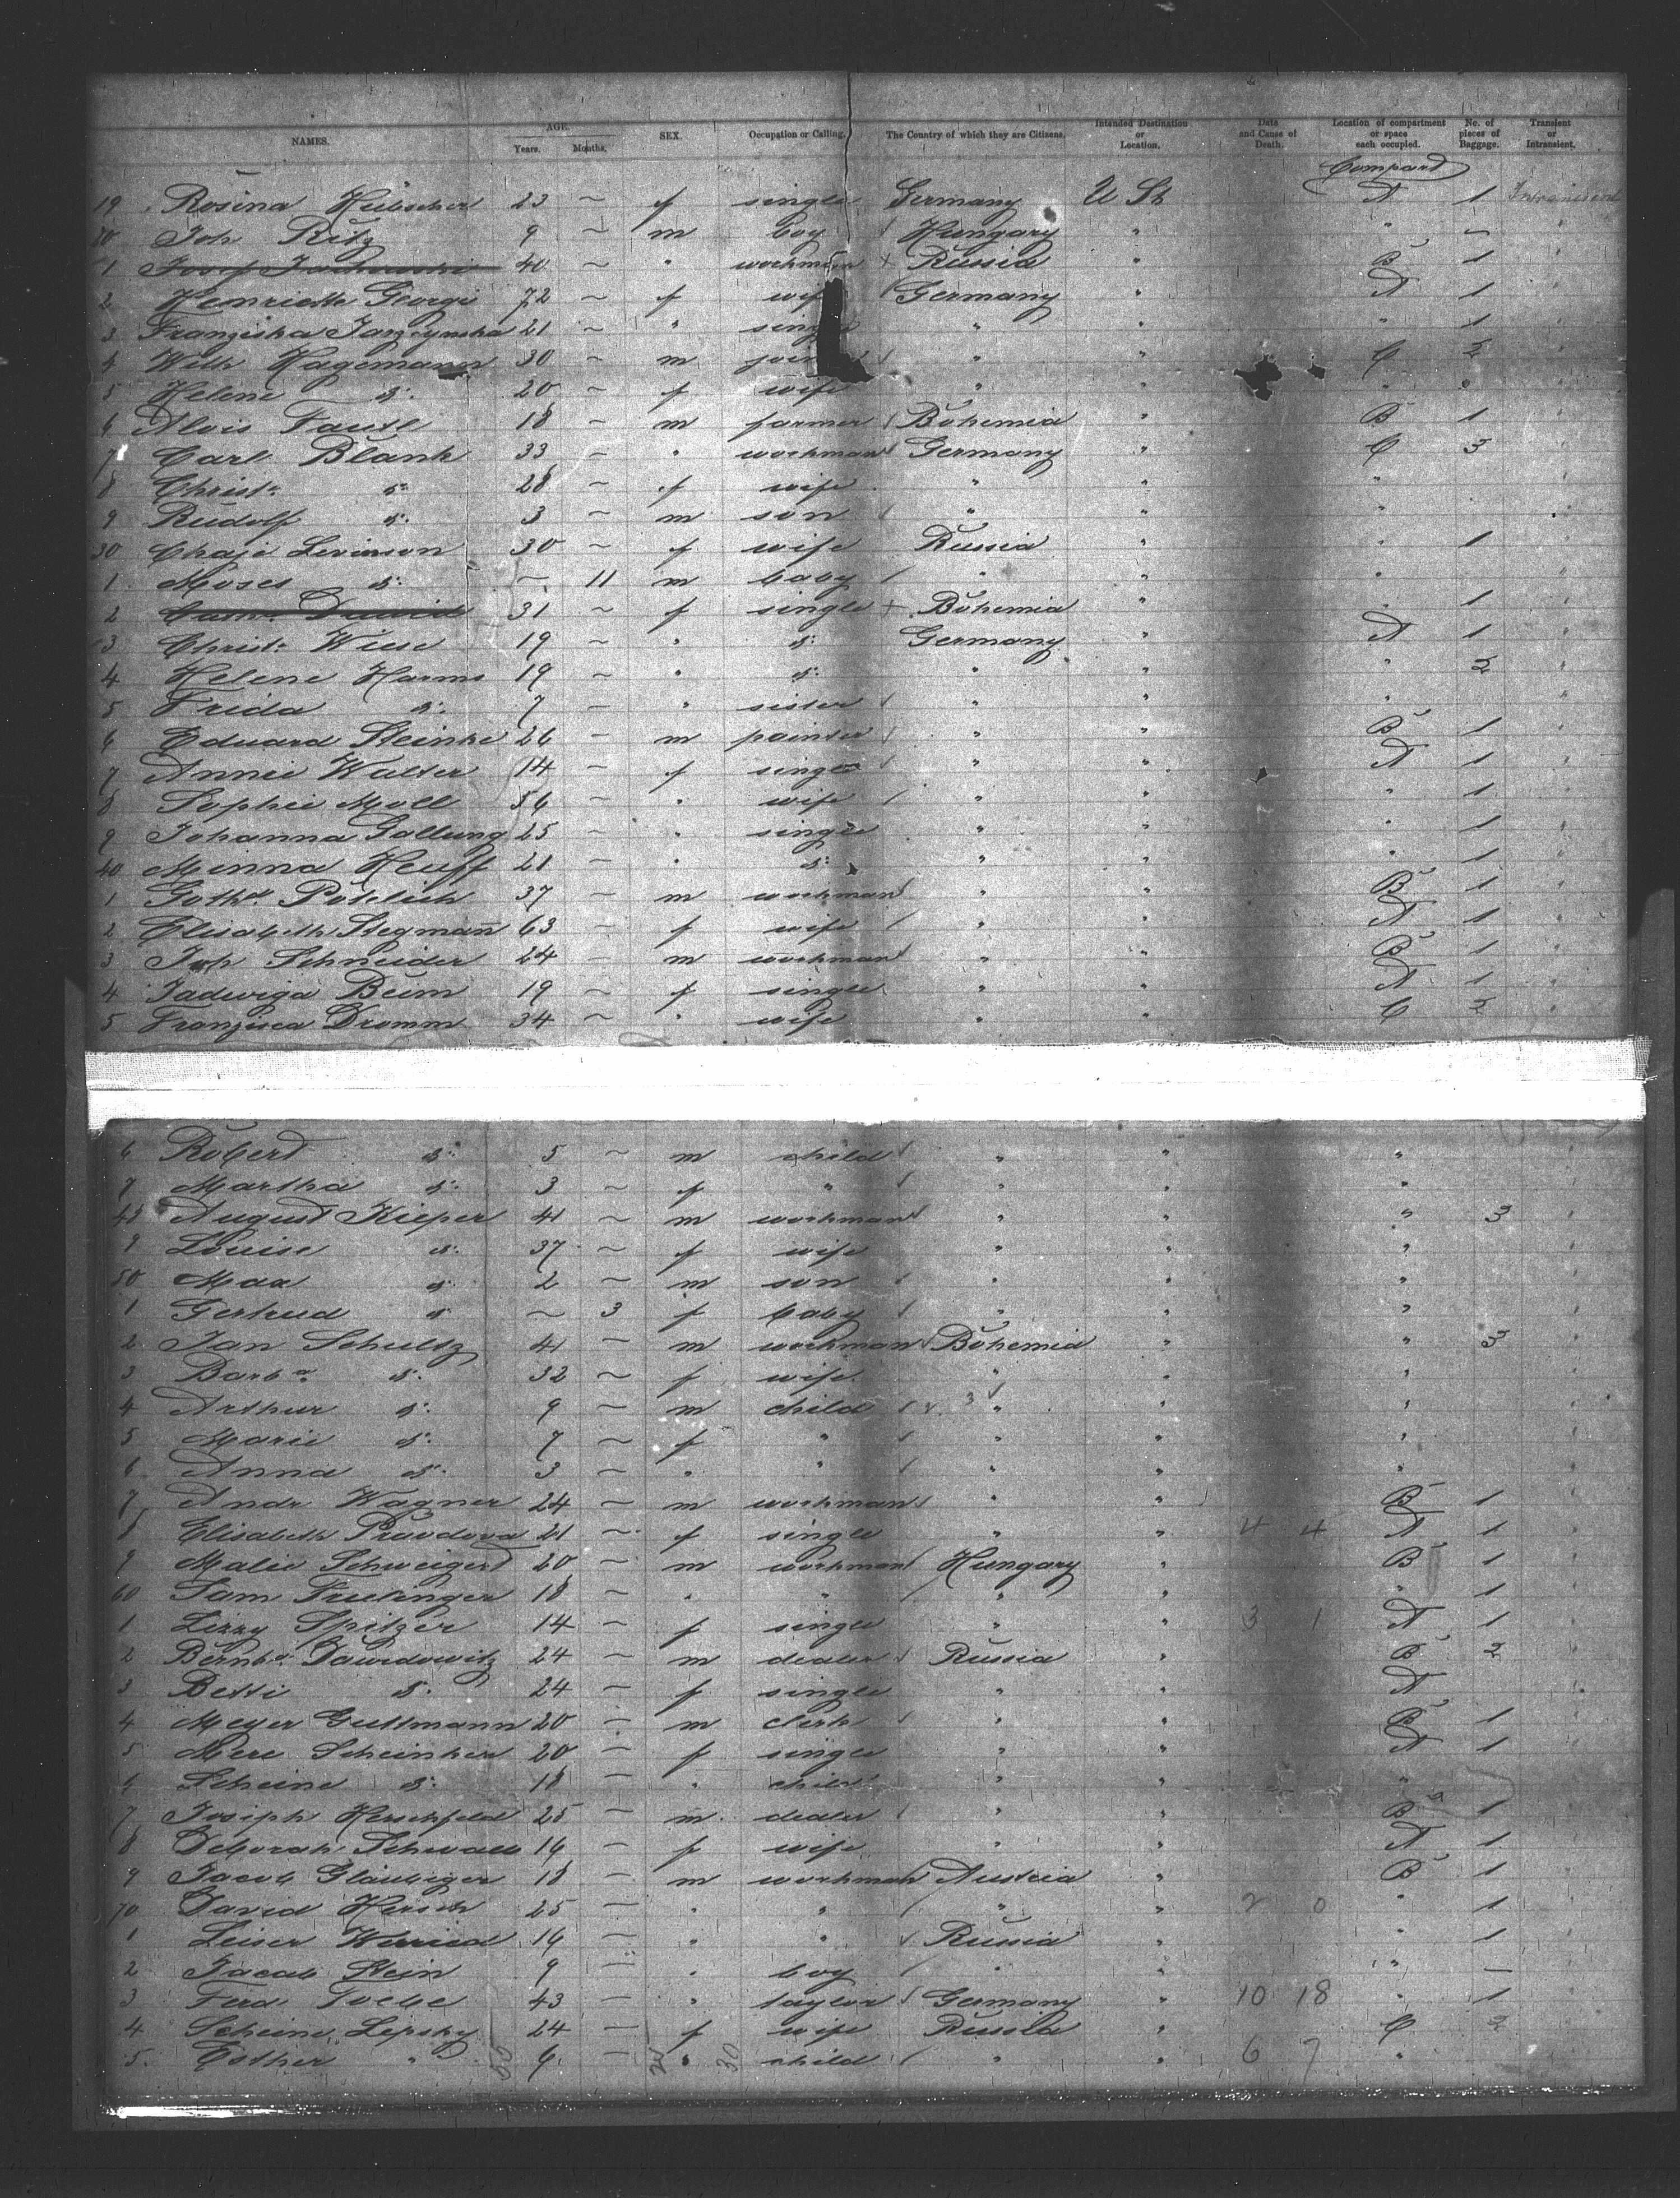 NAMES. AGE. Years. Months. SEX. Occupation or Calling. The Country of which they are Citizens. Intended Destination or Location. Date and Cause of Death. Location of compartment or space each occupied. No. of pieces of Baggage. Transient or Intransient.
Compart
19 Rosina Hübscher 23 ~ f single Germany U St A 1
20 Joh Ritz 9 ~ m boy Hungary " " –
1 40 ~ " workman Russia " B 1
2 Henriette Georgi 72 ~ f wife Germany " A 1
3 Franziska 21 ~ " single " " " 1
4 Wilh Hagemann 30 ~ m " " C 2
5 Helene d: 20 ~ f wife " " " "
6 Alois 18 ~ m farmer Bohemia " B 1
7 Carl Blank 33 ~ " workman Germany " C 3
8 Christe d: 28 ~ f wife " " "
9 Rudolf d: 3 ~ m son " " "
30 Chaje Levinson 30 ~ f wife Russia " " 1
1 Moses d: ~ 11 m baby " " "
2 31 ~ f single Bohemia " " 1
3 Christe Wiese 19 ~ " d: Germany " A 1
4 Helene Harms 19 ~ " d: " " " 2
5 Frida d: 7 – " sister " " "
6 Eduard Steinke 26 – m painter " " B 1
7 Annie Walter 14 – f single " " A 1
8 Sophie Moll 56 ~ " wife " " " 1
9 Johanna Gallung 25 ~ " single " " " 1
40 Minna Heuff 21 – " d: " " " 1
1 Gothd. 37 – m workman " " B 1
2 Elisabeth Stegmañ 63 – f wife " " A 1
3 Joh Schneider 24 – m workman " " B 1
4 Jadwiga 19 – f single " " A 1
5 Franzisca Dromm 34 ~ " wife " " C 2
6 Robert d: 5 ~ m child " " "
7 Martha d: 3 ~ f " " " "
48 August Kieper 41 ~ m workman " " " 3
9 Louise d: 37 ~ f wife " " "
50 Max d: 2 ~ m son " " "
1 Gertrud d: ~ 3 f baby " " "
2 Jan Schultz 41 – m workman Bohemia " " 3
3 Barba. d: 32 ~ f wife " " "
4 Arthur d: 9 ~ m child 3 " " "
5 Marie d: 7 ~ f " " " "
6 Anna d: 3 ~ " " " " "
7 Andr Wagner 24 ~ m workman " " B 1
8 Elisabeth 21 ~ f single " " 4 4 A 1
9 Malie Schweigert 20 ~ m workman Hungary " B 1
60 Sam 18 ~ " " " " " 1
1 Lizzy Spitzer 14 ~ f single " " 3 1 A 1
2 Bernhd. Dawidowitz 24 ~ m dealer Russia " B 2
3 Betti d: 24 – f single " " A
4 Meyer Guttmann 20 – m clerk " " B 1
5 Mere Scheinker 20 – f single " " A 1
6 Scheine d: 18 – " child " " "
7 Joseph Herschfeld 25 – m dealer " " B 1
8 Deborah 19 – f wife " " A 1
9 Jacob Gläubiger 18 – m workman Austria " B 1
70 David Hersch 25 – " " " " 2 0 " 1
1 Leiser – " " Russia " " 1
2 Jacob Stein 9 – " boy " " " –
3 Ferd. 43 – " taylor Germany " 10 18 " 1
4 Scheine Lipsky 24 – f wife Russia " C 2
5. Esther " 6 – " child " " 6 7 "
30